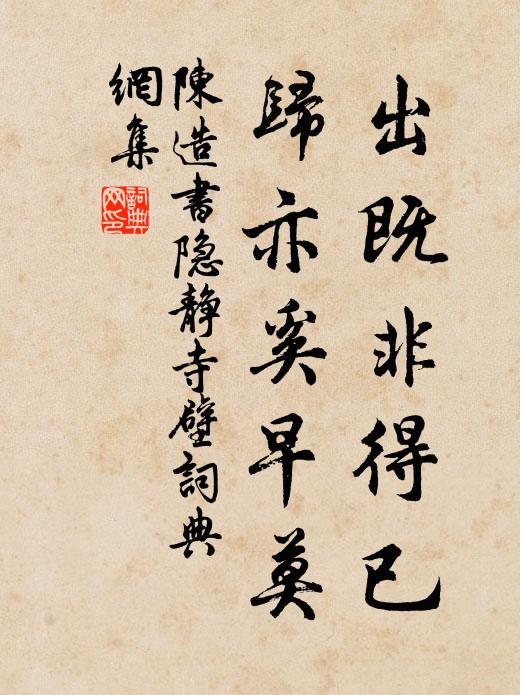 出既非得已
歸亦奚早莫
陳造書隐静寺壁詞典
網集
詞典
网印